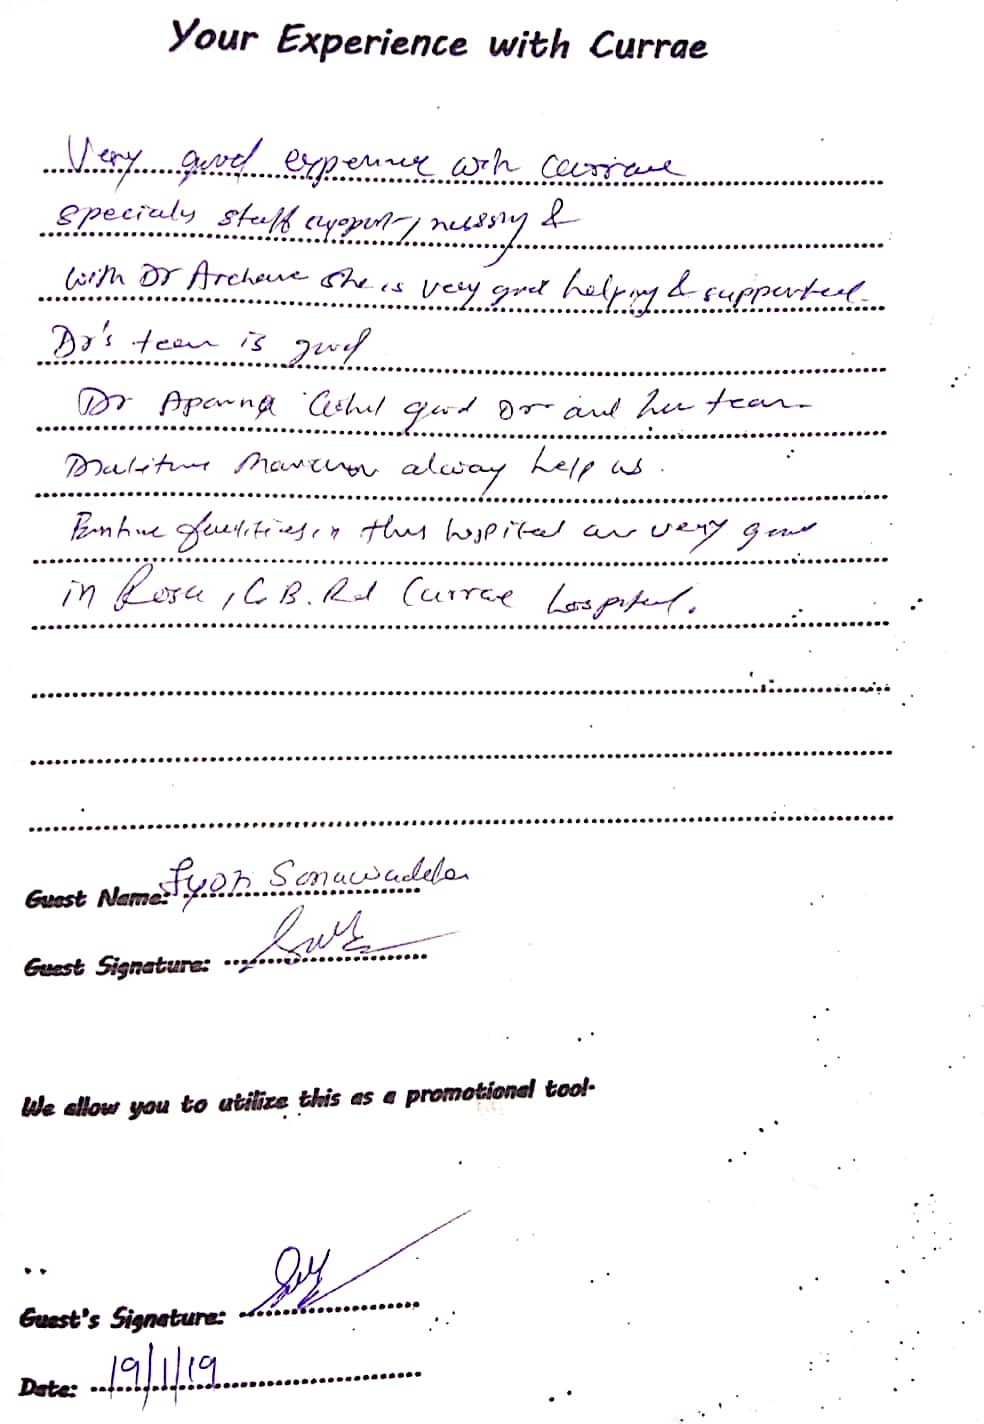 Your Experience with Currae
Very good experience with Currae
specialy staff support, nursing &
with Dr Archana she is very good helping & supported.
Dr's team is good
Dr Aparna good Dr and her team
alway help us.
facilities in this hospital are very good
in G.B. Rd Currae hospital.
Guest Name: Jyoti
Guest Signature:
We allow you to utilize this as a promotional tool.
Guest's Signature:
Date: 19/1/19